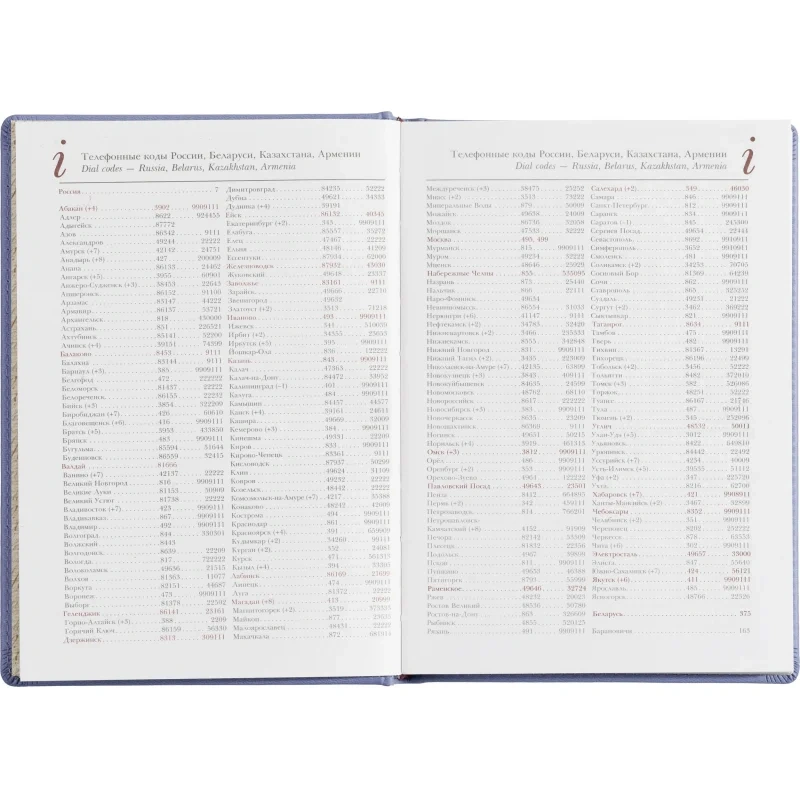 i
Телефонные коды России, Беларуси, Казахстана, Армении
Dial codes — Russia, Belarus, Kazakhstan, Armenia
Россия 7
Абакан (+4) 3902 9909111
Адлер 8622 924455
Адыгейск 87772
Азов 86342 9111
Александров 49244 22222
Амурск (+7) 42142 24751
Анадырь (+8) 427 200009
Анапа 86133 21462
Ангарск (+5) 3955 60901
Анжеро-Судженск (+3) 38453 22643
Апшеронск 86152 91100
Арзамас 83147 44222
Армавир 86137 53721
Архангельск 818 450000
Астрахань 851 226321
Ахтубинск 85141 52200
Ачинск (+4) 39151 74399
Балаково 8453 9111
Балахна 83144 9111
Барнаул (+3) 385 9909111
Белгород 472 222222
Беломорск 81437 22222
Белореченск 86155 22232
Бийск (+3) 3854 322200
Биробиджан (+7) 426 60610
Благовещенск (+6) 416 9909111
Братск (+5) 3953 433850
Брянск 483 9909111
Бугульма 85594 51644
Буденновск 86559 32415
Валдай 81666
Ванино (+7) 42137 22222
Великий Новгород 816 9909111
Великие Луки 81153 30800
Великий Устюг 81738 22222
Владивосток (+7) 423 9909111
Владикавказ 867 9909111
Владимир 492 9909111
Волгоград 844 330301
Волжский 8443
Волгодонск 8639 22209
Вологда 817 722222
Волоколамск 49636 23545
Волхов 81363 11077
Воркута 82151 44687
Воронеж 473 9909111
Выборг 81378 22592
Геленджик 86141 23161
Горно-Алтайск (+3) 388 2299
Горячий Ключ 86159 36330
Дзержинск 8313 309111
Димитровград 84235 52222
Дубна 49621 34533
Дудинка (+4) 39191
Ейск 86132 40345
Екатеринбург (+2) 343 9909111
Елабуга 85557 35272
Елец 47467 22222
Ельня 48146 41299
Ессентуки 87934 62006
Железноводск 87932 45030
Жуковский 49648 23337
Заволжье 83161 9111
Зарайск 49666 22716
Звенигород 49632
Златоуст (+2) 3513 71218
Иваново 493 9909111
Ижевск 341 510039
Ирбит (+2) 34355 23053
Иркутск (+5) 395 9909111
Йошкар-Ола 836 122222
Казань 843 9909111
Калач 47363 22222
Калач-на-Дону 84472 53952
Калининград (-1) 401 9909111
Калуга 484 9909111
Камышин 84457 44577
Канск (+4) 39161 24611
Кашира 49669 32000
Кемерово (+3) 384 9909111
Кинешма 49331 22200
Киров 833 9909111
Кирово-Чепецк 83361 9111
Кисловодск 87937 50290
Клин 49624 31109
Ковров 49232 22222
Козельск 48442 22222
Комсомольск-на-Амуре (+7) 4217 35388
Конаково 48242 42009
Кострома 494 9909111
Краснодар 861 9909111
Красноярск (+4) 391 659009
Кудымкар (+2) 34260 99111
Курган (+2) 352 24681
Курск 471 561313
Кызыл (+4) 394 33300
Лабинск 86169 23699
Липецк 474 9909111
Луга 81372 22222
Магадан (+8) 413 20900
Магнитогорск (+2) 3519 373333
Майкоп 877 23633
Малоярославец 48431 22222
Махачкала 872 681014
Телефонные коды России, Беларуси, Казахстана, Армении
Dial codes — Russia, Belarus, Kazakhstan, Armenia
i
Междуреченск (+3) 38475 25252
Миасс (+2) 3513 73222
Минеральные Воды 879 50009
Можайск 49638 21009
Моздок 86736 32058
Моршанск 47533 32222
Москва 495, 499
Мурманск 815 9909111
Муром 49234 32222
Мценск 48646 25929
Набережные Челны 855 535095
Надым 873 25440
Нальчик 866 22111
Наро-Фоминск 49634
Невинномысск 86554 51033
Нерюнгри (+6) 41147 9111
Нефтекамск (+2) 34783 52420
Нижневартовск (+2) 3466 235533
Нижнекамск 8555 342848
Нижний Новгород 831 9909111
Нижний Тагил (+2) 3435 223009
Николаевск-на-Амуре (+7) 42135 63809
Новокузнецк (+3) 3843 469111
Новокуйбышевск 84635 24599
Новомосковск 48762 68110
Новороссийск 8617 222222
Новосибирск (+3) 383 9909111
Новочеркасск 8635 23209
Новошахтинск 86369 9111
Ногинск 49651 50215
Норильск (+4) 3919 461343
Омск (+3) 3812 9909111
Орёл 486 9909111
Оренбург (+2) 353 9909111
Орехово-Зуево 4961 122222
Павловский Посад 49643 23501
Пенза 8412 664895
Пермь (+2) 342 459111
Петрозаводск 814 766201
Петропавловск-
Камчатский (+8) 4152 91909
Печора 82142 33509
Плисецк 81832 22256
Подольск 4967 30809
Псков 811 9909111
Пушкино 49653 46388
Пятигорск 8793 55999
Раменское 49646 32724
Ржев 48232 20023
Ростов Великий 48536 30780
Ростов-на-Дону 863 326609
Рыбинск 4855 520125
Рязань 491 9909111
Салехард (+2) 349 46050
Самара 846 9909111
Санкт-Петербург 812 9909111
Саранск 834 9909111
Саратов (-1) 845 245309
Сергиев Посад 49654 22443
Севастополь 8692 9910911
Симферополь 3652 9909111
Смоленск 481 9909111
Соликамск (+2) 34253 70763
Сосновый Бор 81369 64239
Сочи 862 9909111
Ставрополь 865 325232
Суздаль 49231 21222
Сургут (+2) 3462 369222
Сыктывкар 821 9909111
Таганрог 8634 9111
Тамбов 475 9909111
Тверь 482 9909111
Тихвин 81367 13291
Тихорецк 86196 22499
Тобольск (+2) 3456 52222
Тольятти 8482 372010
Томск (+3) 382 526086
Торжок 48251 52222
Туапсе 86167 21746
Тула 487 9909111
Тюмень (+2) 345 232096
Углич 48532 50011
Улан-Удэ (+5) 3012 9909111
Ульяновск 8422 640810
Урюпинск 84442 22492
Уссурийск (+7) 4234 40009
Усть-Илимск (+5) 39535 51112
Уфа (+2) 347 225720
Ухта 8216 62700
Хабаровск (+7) 421 9909111
Ханты-Мансийск (+2) 3467 32899
Чебоксары 8352 9909111
Челябинск (+2) 351 9909111
Череповец 8202 252222
Черкесск 878 63553
Чита (+6) 302 9909111
Электросталь 49657 33000
Элиста 847 55640
Южно-Сахалинск (+7) 424 56121
Якутск (+6) 411 9909111
Ярославль 485 9909111
Ясногорск 48766 22526
Беларусь 375
Барановичи 163